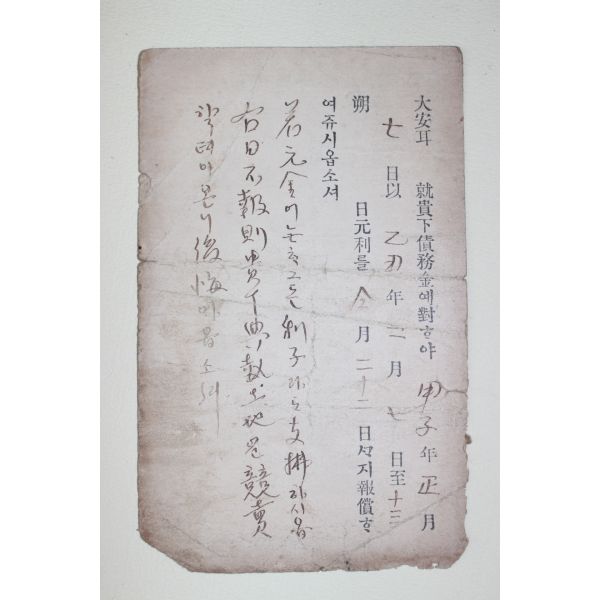 大安耳 就貴下債務金에對ᄒᆞ야 甲子年正月
七日以 乙丑年二月七日至十三
朔 日元利를 今月二十二日ᄭᆞ지報償ᄒᆞ
여쥬시옵소셔
若元金이 利子라도支拂하시옵
右日不報則貴下典執土地을競賣
할터이온니後悔마옵소셔